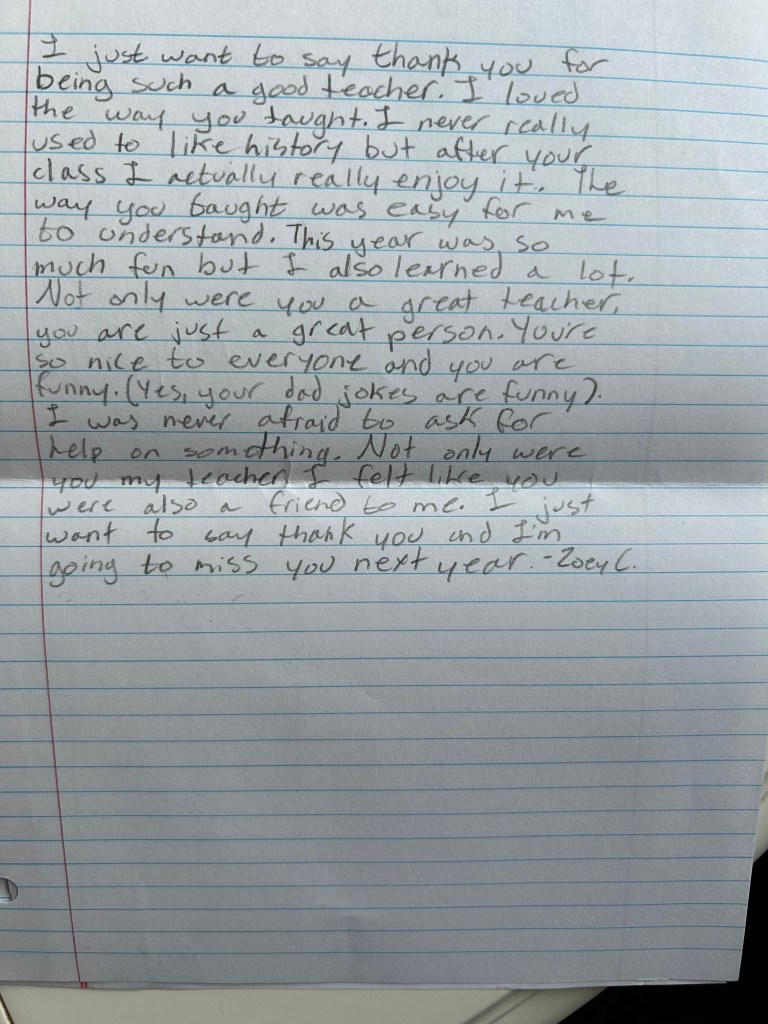 I just want to say thank you for
being such a good teacher. I loved
the way you taught. I never really
used to like history but after your
class I actually really enjoy it. The
way you taught was easy for me
to understand. This year was so
much fun but I also learned a lot.
Not only were you a great teacher,
you are just a great person. You're
so nice to everyone and you are
funny. (Yes, your dad jokes are funny).
I was never afraid to ask for
help on something. Not only were
you my teacher, I felt like you
were also a friend to me. I just
want to say thank you and I'm
going to miss you next year. -Zoey C.